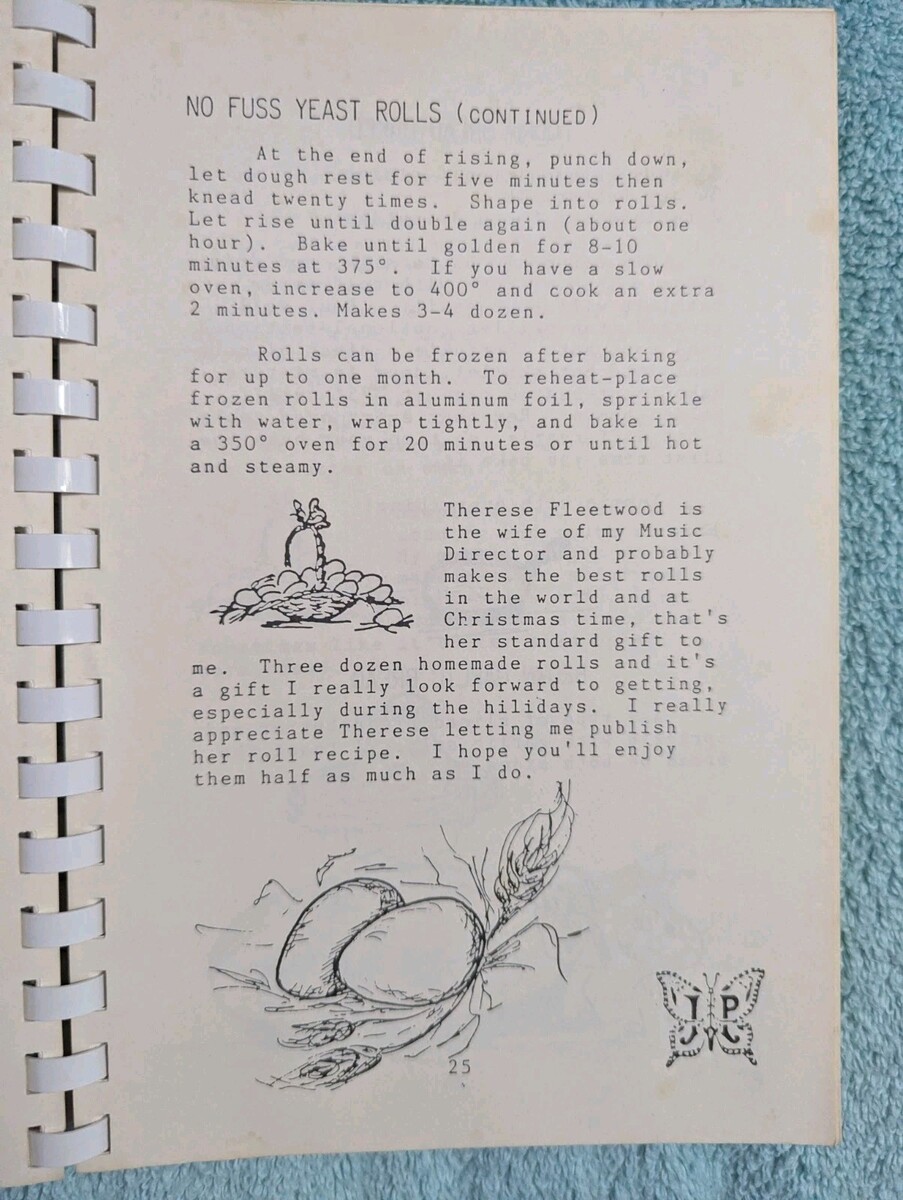 NO FUSS YEAST ROLLS (CONTINUED)
At the end of rising, punch down,
let dough rest for five minutes then
knead twenty times. Shape into rolls.
Let rise until double again (about one
hour). Bake until golden for 8-10
minutes at 375°. If you have a slow
oven, increase to 400° and cook an extra
2 minutes. Makes 3-4 dozen.
Rolls can be frozen after baking
for up to one month. To reheat-place
frozen rolls in aluminum foil, sprinkle
with water, wrap tightly, and bake in
a 350° oven for 20 minutes or until hot
and steamy.
Therese Fleetwood is
the wife of my Music
Director and probably
makes the best rolls
in the world and at
Christmas time, that's
her standard gift to
me. Three dozen homemade rolls and it's
a gift I really look forward to getting,
especially during the hilidays. I really
appreciate Therese letting me publish
her roll recipe. I hope you'll enjoy
them half as much as I do.
J P
25